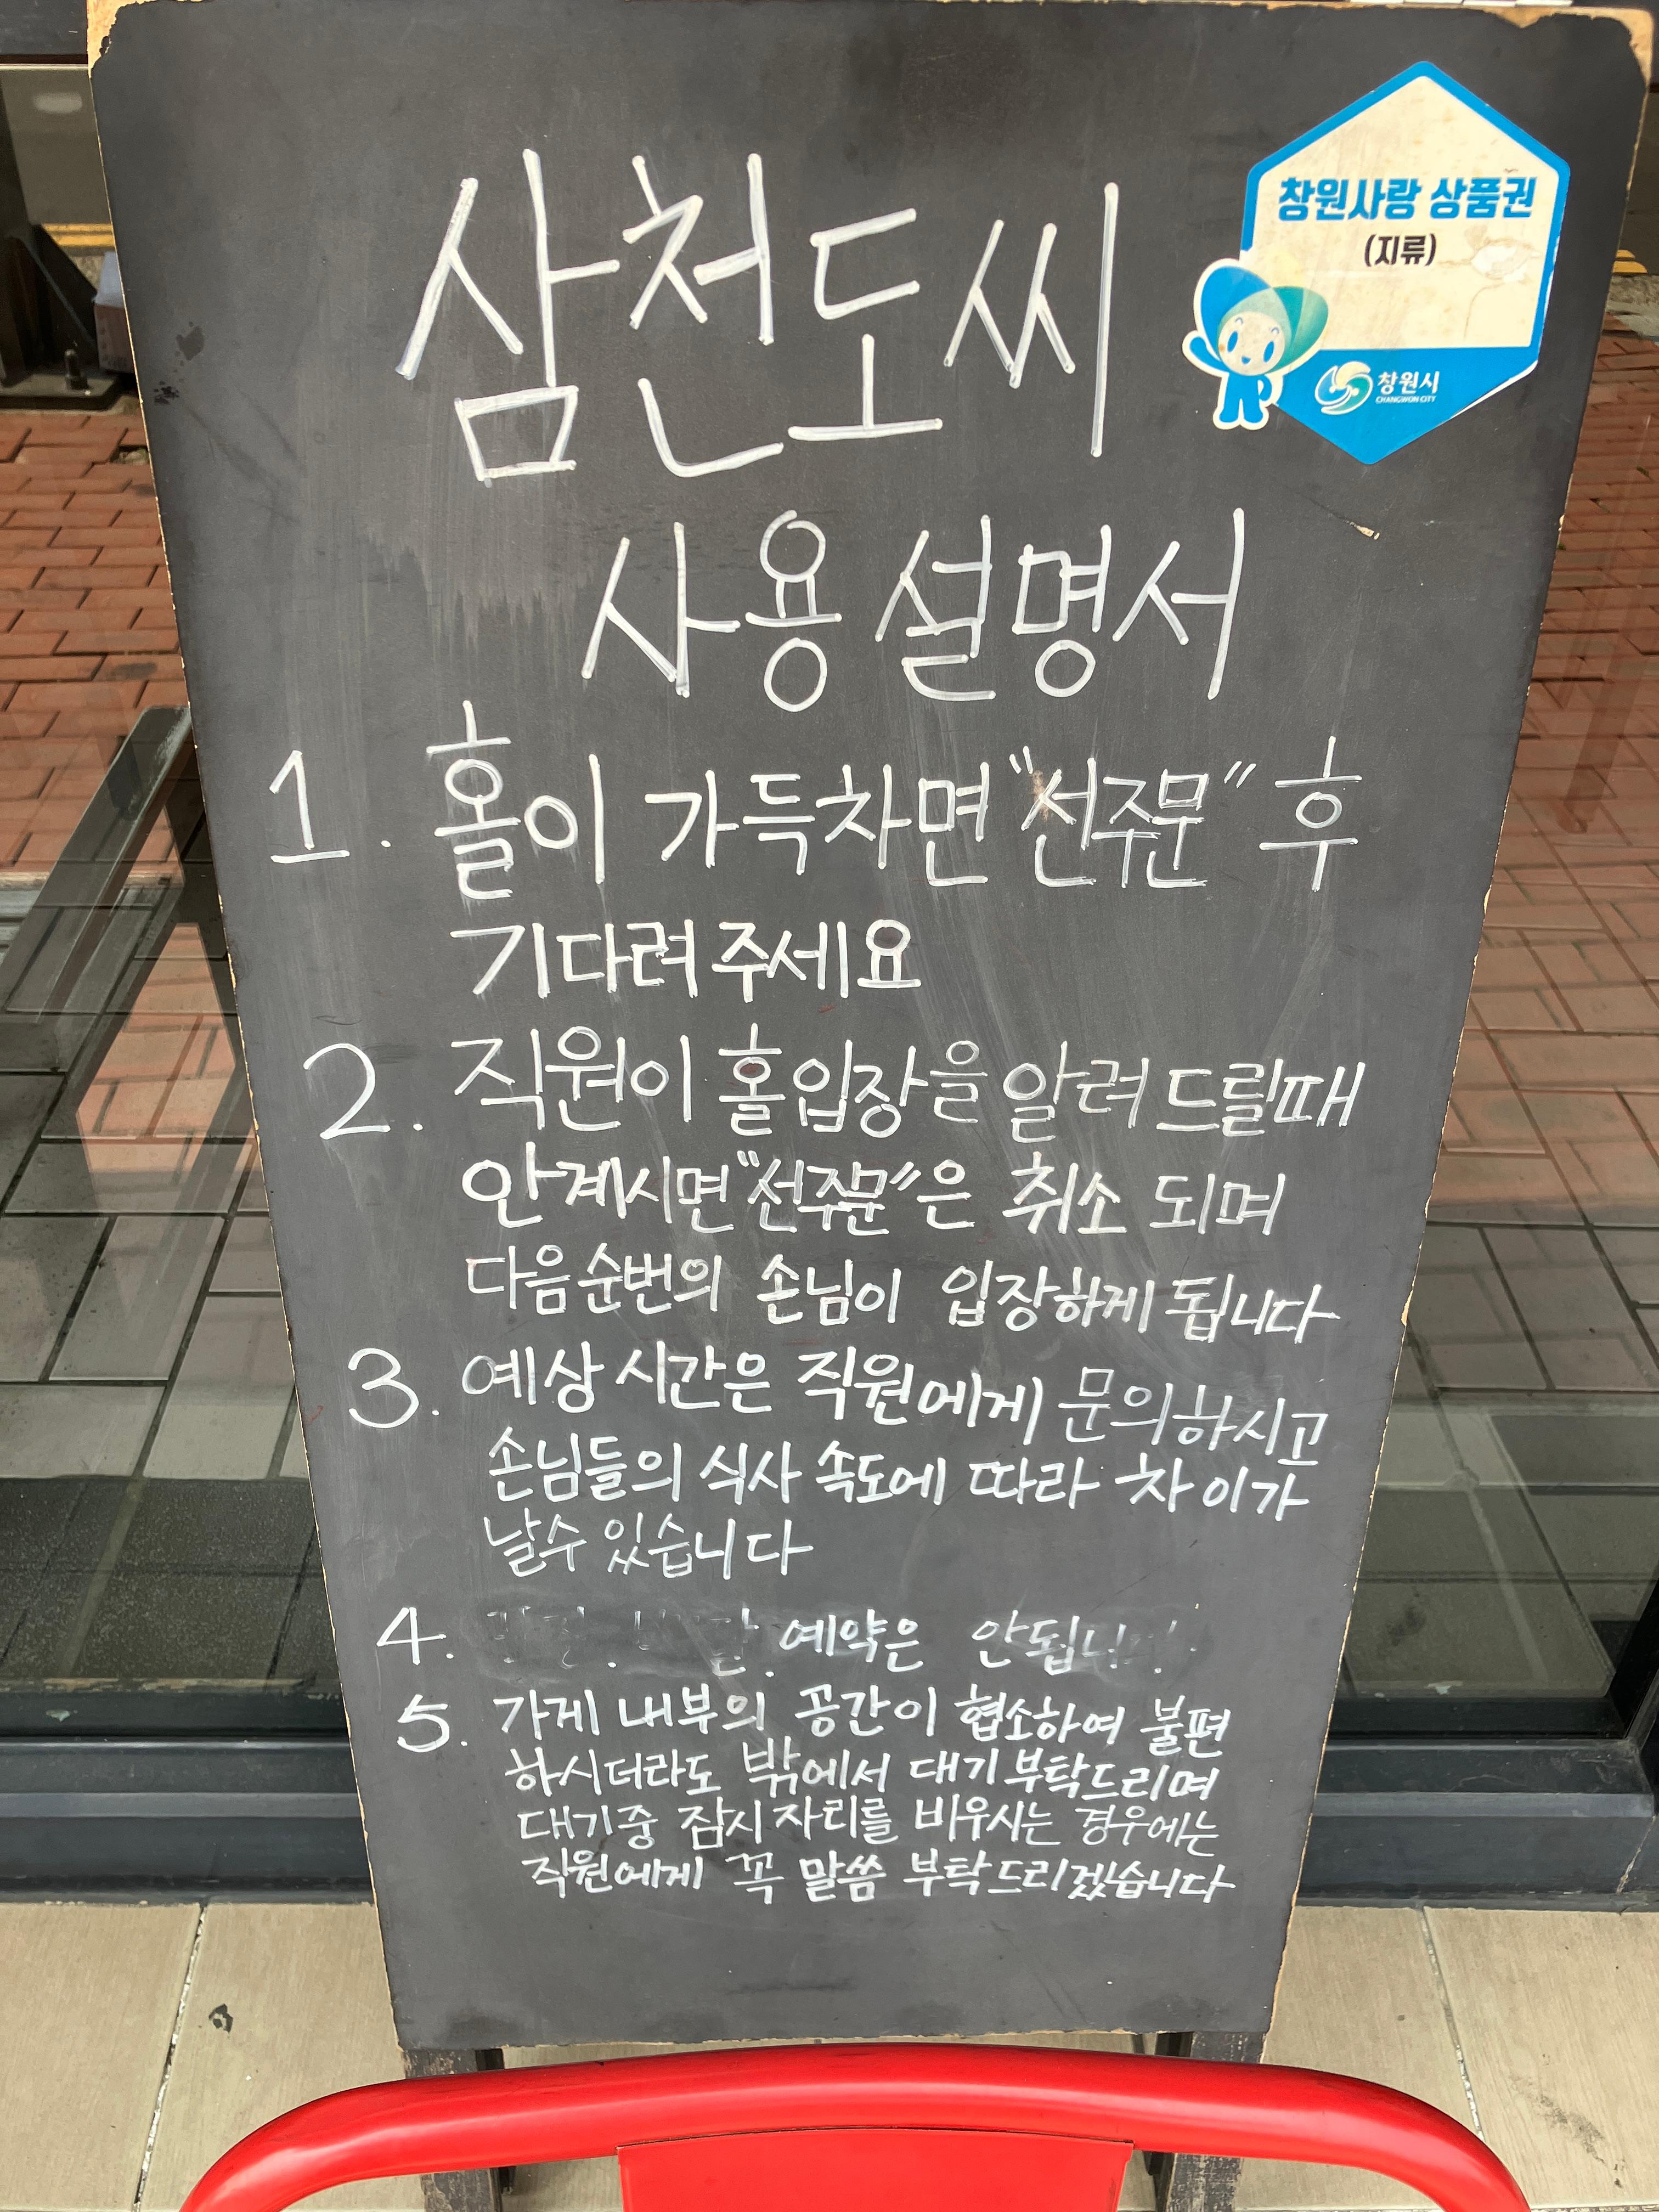 삼천도씨
창원사랑 상품권
(지류)
창원시
CHANGWON CITY
사용설명서
1. 홀이 가득차면 "선주문" 후
기다려 주세요
2. 직원이 홀입장을 알려드릴때
안계시면 "선주문"은 취소 되며
다음순번의 손님이 입장하게 됩니다
3. 예상 시간은 직원에게 문의하시고
손님들의 식사 속도에 따라 차이가
날수 있습니다
4. 예약은
5. 가게 내부의 공간이 협소하여 불편
하시더라도 밖에서 대기부탁드리며
대기중 잠시 자리를 비우시는 경우에는
직원에게 꼭 말씀 부탁드리겠습니다